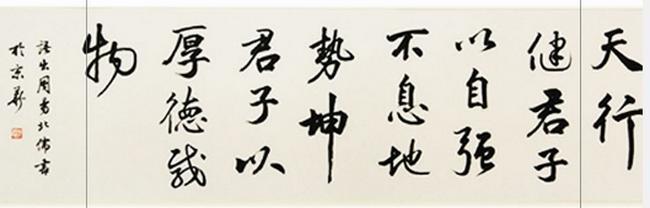 天行
健君子
以自强
不息地
勢坤
君子以
厚德载
物
语出周易北儒书
於京華